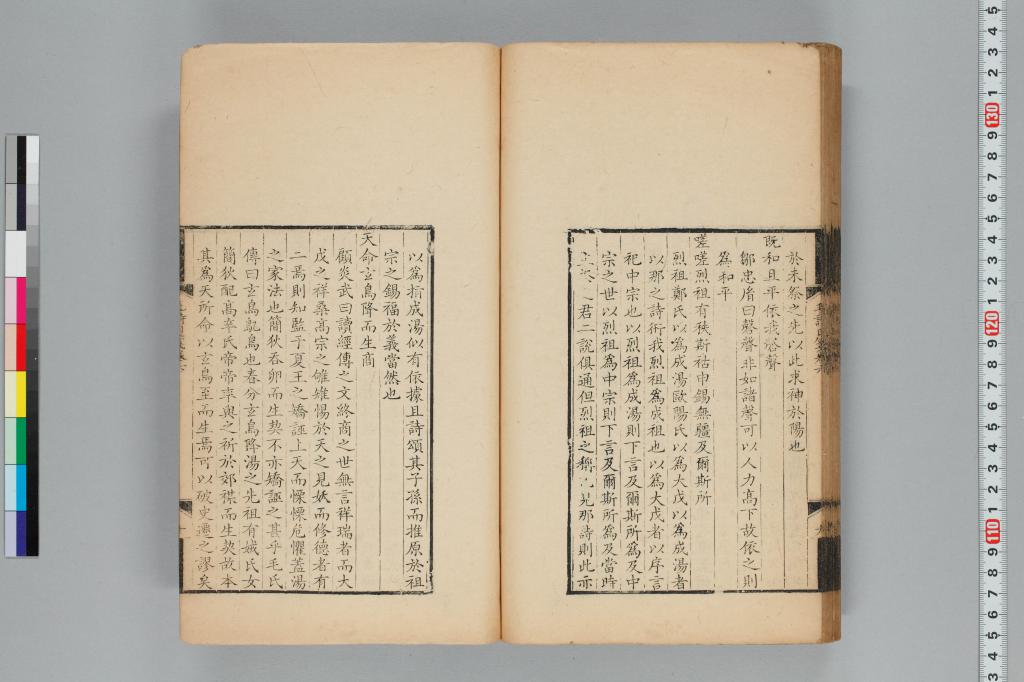 於未祭之先以此求神於陽也
既和且平依我磬聲
鄒忠胤曰磬聲非如諸聲可以人力高下故依之則
為和平
嗟嗟烈祖有秩斯祜申錫無疆及爾斯所
烈祖鄭氏以為成湯歐陽氏以為大戊以為成湯者
以那之詩衎我烈祖為成祖也以為大戊者以序言
祀中宗也以烈祖為成湯則下言及爾斯所為及中
宗之世以烈祖為中宗則下言及爾斯所為及當時
之君二說俱通但烈祖之稱見那詩則此亦
以為指成湯似有依據且詩頌其子孫而推原於祖
宗之錫福於義當然也
天命玄鳥降而生商
顧炎武曰讀經傳之文終商之世無言祥瑞者而大
戊之祥桑高宗之雊雉惕於天之見妖而修德者有
二焉則知監于夏王之矯誣上天而慄慄危懼蓋湯
之家法也簡狄吞卵而生契不亦矯誣之甚乎毛氏
傳曰玄鳥鳦鳥也春分玄鳥降湯之先祖有娀氏女
簡狄配高辛氏帝帝率與之祈於郊禖而生契故本
其為天所命以玄鳥至而生焉可以破史遷之謬矣